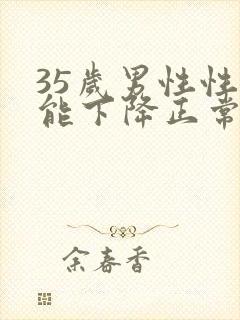 35岁男性性
能下降正常
余春香